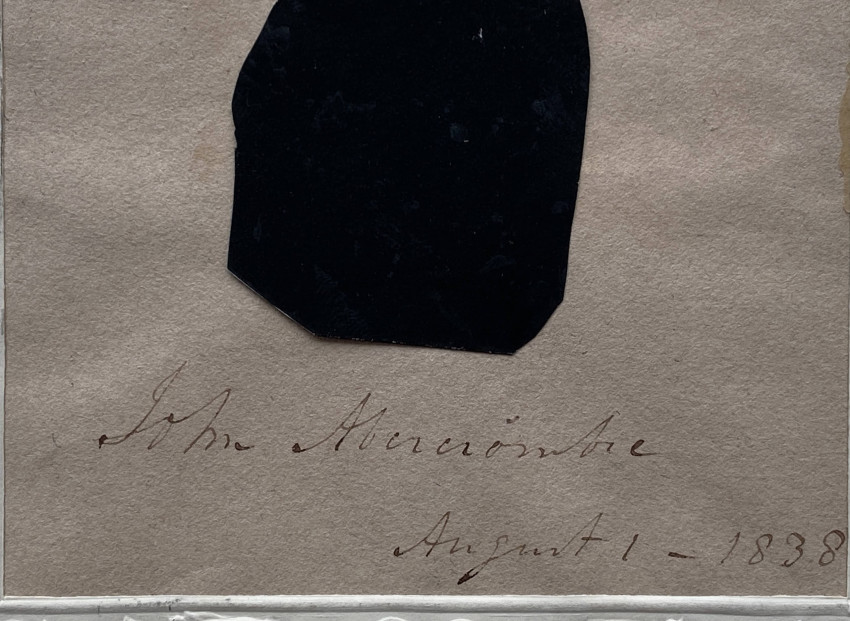 John Abercrombie
August 1 - 1838